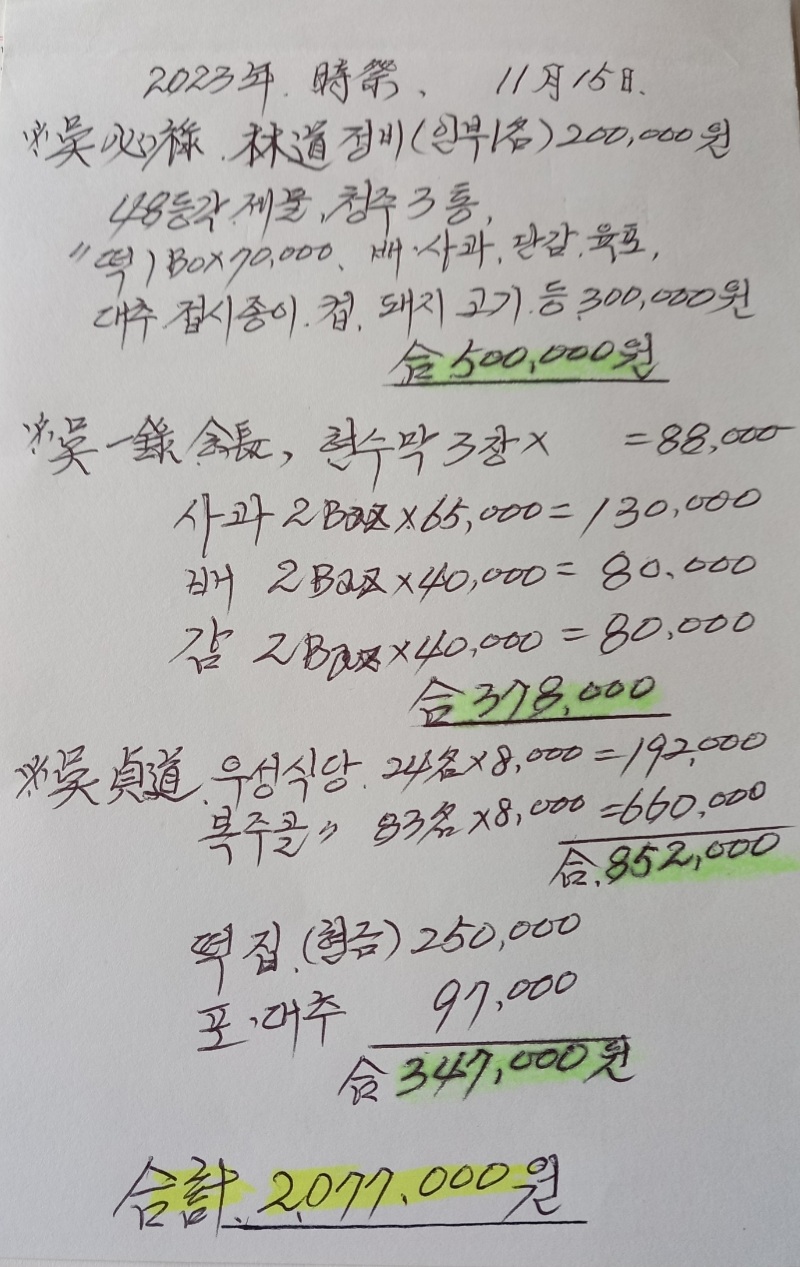 2023年. 時祭、 11月15日.
※吳 必祿. 林道정비(인부1名)200,000원
48등각 제물, 청주3통,
〃떡 1Box70,000、배·사과, 단감. 육포,
대추. 접시종이. 컵. 돼지고기. 등.300,000원
合500,000원
※吳 一錄 會長, 현수막 3장× =88,000
사과 2Box×65,000=130,000
배 2Box×40,000=80.000
감 2Box×40,000=80,000
合378,000
※吳 貞道. 우성식당. 24名×8,000=192,000
북주골 〃 83名×8,000=660,000
合.852,000
떡집.(현금)250,000
포·대추 97,000
合347,000원
合計. 2,077.000원